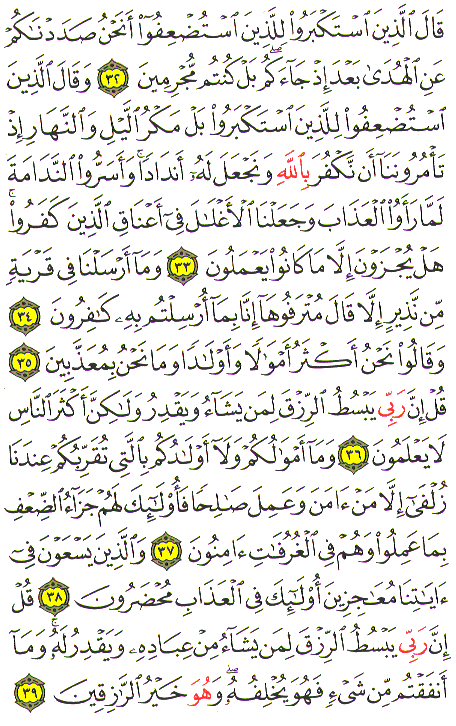 قَالَ ٱلَّذِينَ ٱسۡتَكۡبَرُواْ لِلَّذِينَ ٱسۡتُضۡعِفُوٓاْ أَنَحۡنُ صَدَدۡنَٰكُمۡ
عَنِ ٱلۡهُدَىٰ بَعۡدَ إِذۡ جَآءَكُمۖ بَلۡ كُنتُم مُّجۡرِمِينَ ٣٢ وَقَالَ ٱلَّذِينَ
ٱسۡتُضۡعِفُواْ لِلَّذِينَ ٱسۡتَكۡبَرُواْ بَلۡ مَكۡرُ ٱلَّيۡلِ وَٱلنَّهَارِ إِذۡ
تَأۡمُرُونَنَآ أَن نَّكۡفُرَ بِٱللَّهِ وَنَجۡعَلَ لَهُۥٓ أَندَادٗاۚ وَأَسَرُّواْ ٱلنَّدَامَةَ
لَمَّا رَأَوُاْ ٱلۡعَذَابَۚ وَجَعَلۡنَا ٱلۡأَغۡلَٰلَ فِيٓ أَعۡنَاقِ ٱلَّذِينَ كَفَرُواْۖ
هَلۡ يُجۡزَوۡنَ إِلَّا مَا كَانُواْ يَعۡمَلُونَ ٣٣ وَمَآ أَرۡسَلۡنَا فِي قَرۡيَةٖ
مِّن نَّذِيرٍ إِلَّا قَالَ مُتۡرَفُوهَآ إِنَّا بِمَآ أُرۡسِلۡتُم بِهِۦ كَٰفِرُونَ ٣٤
وَقَالُواْ نَحۡنُ أَكۡثَرُ أَمۡوَٰلٗا وَأَوۡلَٰدٗا وَمَا نَحۡنُ بِمُعَذَّبِينَ ٣٥
قُلۡ إِنَّ رَبِّي يَبۡسُطُ ٱلرِّزۡقَ لِمَن يَشَآءُ وَيَقۡدِرُ وَلَٰكِنَّ أَكۡثَرَ ٱلنَّاسِ
لَا يَعۡلَمُونَ ٣٦ وَمَآ أَمۡوَٰلُكُمۡ وَلَآ أَوۡلَٰدُكُم بِٱلَّتِي تُقَرِّبُكُمۡ عِندَنَا
زُلۡفَىٰٓ إِلَّا مَنۡ ءَامَنَ وَعَمِلَ صَٰلِحٗا فَأُوْلَٰٓئِكَ لَهُمۡ جَزَآءُ ٱلضِّعۡفِ
بِمَا عَمِلُواْ وَهُمۡ فِي ٱلۡغُرُفَٰتِ ءَامِنُونَ ٣٧ وَٱلَّذِينَ يَسۡعَوۡنَ فِيٓ
ءَايَٰتِنَا مُعَٰجِزِينَ أُوْلَٰٓئِكَ فِي ٱلۡعَذَابِ مُحۡضَرُونَ ٣٨ قُلۡ
إِنَّ رَبِّي يَبۡسُطُ ٱلرِّزۡقَ لِمَن يَشَآءُ مِنۡ عِبَادِهِۦ وَيَقۡدِرُ لَهُۥۚ وَمَآ
أَنفَقۡتُم مِّن شَيۡءٖ فَهُوَ يُخۡلِفُهُۥۖ وَهُوَ خَيۡرُ ٱلرَّٰزِقِينَ ٣٩